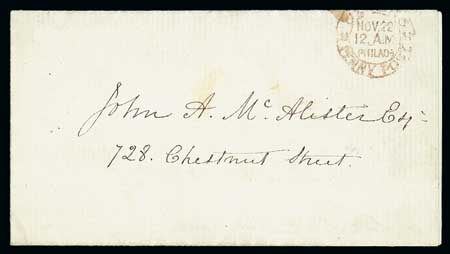 NOV. 22
12 A.M
PHILADA
PENNY POST
John A. Mc. Alister Esq.
728. Chestnut Street.